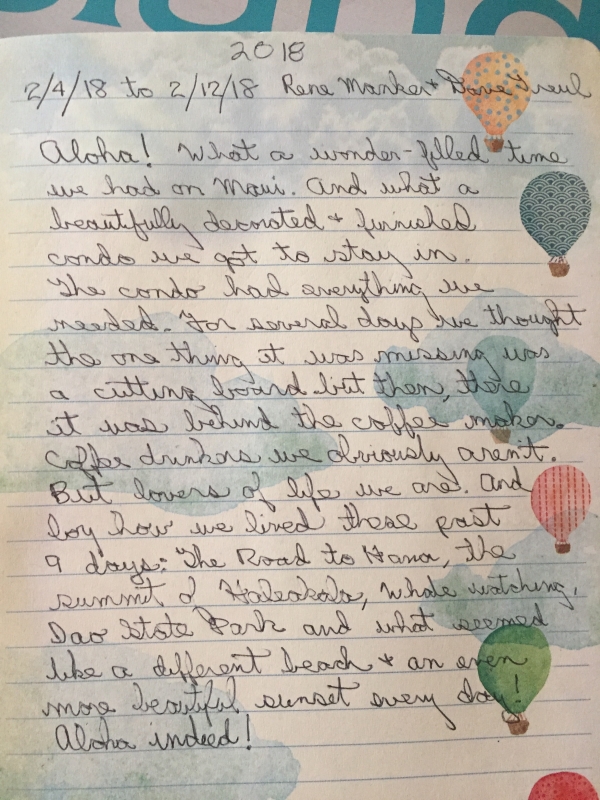 2018
2/4/18 to 2/12/18 Rene Manker + Dave Treul
Aloha! What a wonder-filled time
we had on Maui. And what a
beautifully decorated + furnished
condo we got to stay in.
The condo had everything we
needed. For several days we thought
the one thing it was missing was
a cutting board but then, there
it was behind the coffee maker.
Coffee drinkers we obviously aren't.
But lovers of life we are. And
boy how we lived these past
9 days: The Road to Hana, the
summit of Haleakala, whale watching,
Iao State Park and what seemed
like a different beach + an even
more beautiful sunset every day!
Aloha indeed!